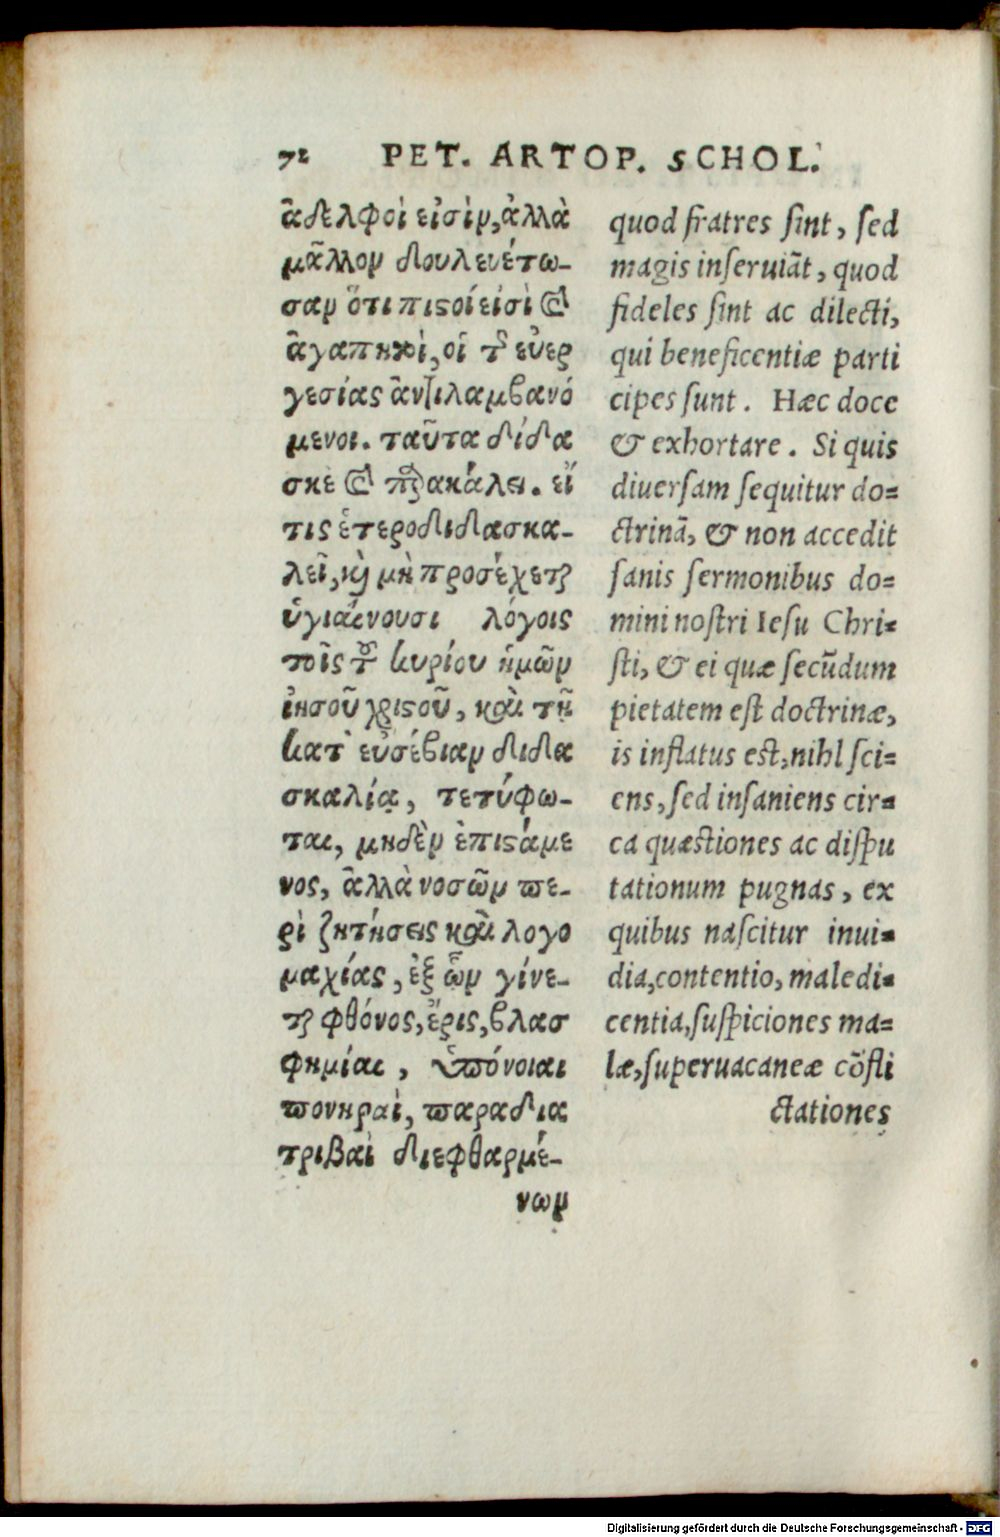 72 PET. ARTOP. SCHOL.
ἀδελφοὶ εἰσὶν, ἀλλὰ
μᾶλλον δουλευέτω-
σαν ὅτι πιϛοί εἰσὶ καὶ
ἀγαπητοὶ, οἱ τῆς εὐερ
γεσίας ἀντιλαμβανό
μενοι. ταῦτα δίδα
σκε καὶ παρακάλει. εἴ
τις ἑτεροδιδασκα-
λεῖ, καὶ μὴ προσέχεται
ὑγιαίνουσι λόγοις
τοῖς τοῦ κυρίου ἡμῶν
ἰησοῦ χριϛοῦ, καὶ τῇ
κατ᾽ εὐσέβιαν διδα
σκαλίᾳ, τετύφω-
ται, μηδὲν ἐπιϛάμε
νος, ἀλλὰ νοσῶν πε-
ρὶ ζητήσεις καὶ λογο
μαχίας, ἐξ ὧν γίνε-
ται φθόνος, ἔρις, βλασ
φημίαι, ὑπόνοιαι
πονηραὶ, παραδια
τριβαὶ διεφθαρμέ-
νων
quod fratres sint, sed
magis inseruiãt, quod
fideles sint ac dilecti,
qui beneficentiæ parti
cipes sunt. Hæc doce
& exhortare. Si quis
diuersam sequitur do=
ctrinã, & non accedit
sanis sermonibus do=
mini nostri Iesu Chri=
sti, & ei quæ secũdum
pietatem est doctrinæ,
is inflatus est, nihl sci=
ens, sed insaniens cir=
ca quæstiones ac dispu
tationum pugnas, ex
quibus nascitur inui=
dia, contentio, maledi=
centia, suspiciones ma=
læ, superuacaneæ cõfli
ctationes
Digitalisierung gefördert durch die Deutsche Forschungsgemeinschaft - DFG